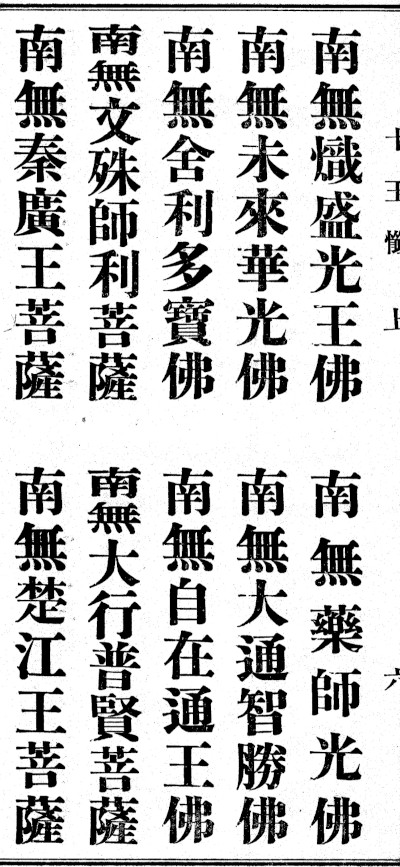 十王懺上 六
南無熾盛光王佛 南無藥師光佛
南無未來華光佛 南無大通智勝佛
南無舍利多寶佛 南無自在通王佛
南無文殊師利菩薩 南無大行普賢菩薩
南無秦廣王菩薩 南無楚江王菩薩